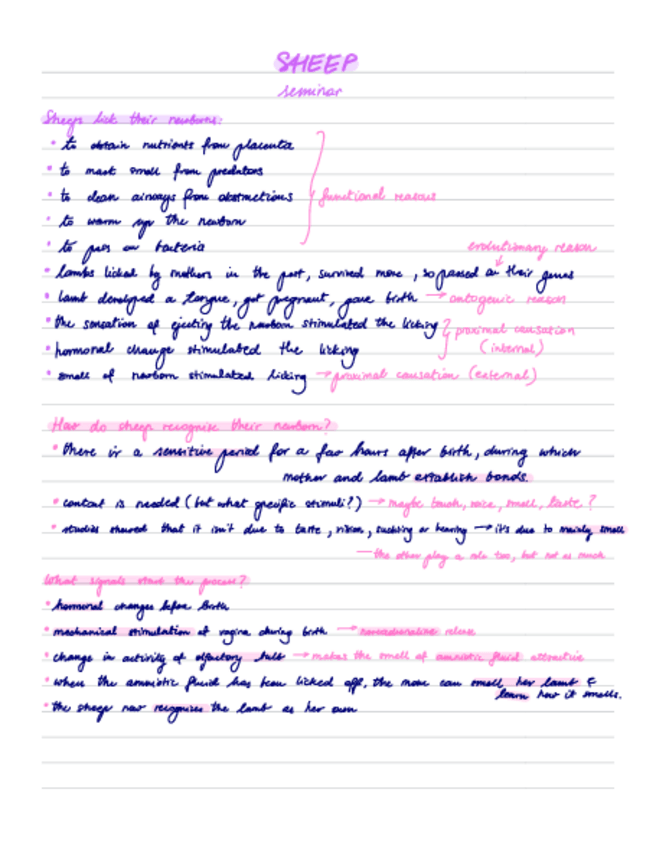 SHEEP
seminar
Sheeps lick their newborns:
• to obtain nutrients from placenta
• to mask smell from predators
• to clean airways from obstructions
functional reasons
• to warm up the newborn
• to pass on bacteria
evolutionary reason
• lambs licked by mothers in the past, survived more, so passed on their genes
• lamb developed a tongue, got pregnant, gave birth → ontogenic reason
• the sensation of ejecting the newborn stimulated the licking
proximal causation
• hormonal change stimulated the licking
(internal)
• smell of newborn stimulated licking → proximal causation (external)
How do sheep recognise their newborn?
• there is a sensitive period for a few hours after birth, during which
mother and lamb establish bonds.
• contact is needed (but what specific stimuli?) → maybe touch, voice, smell, taste?
• studies showed that it isn't due to taste, vision, suckling or hearing → it's due to mainly smell
— the other play a role too, but not as much
What signals start the process?
• hormonal changes before birth
• mechanical stimulation of vagina during birth → noradrenaline release
• change in activity of olfactory bulb → makes the smell of amniotic fluid attractive
• when the amniotic fluid has been licked off, the mom can smell her lamb &
learn how it smells.
• the sheep now recognises the lamb as her own